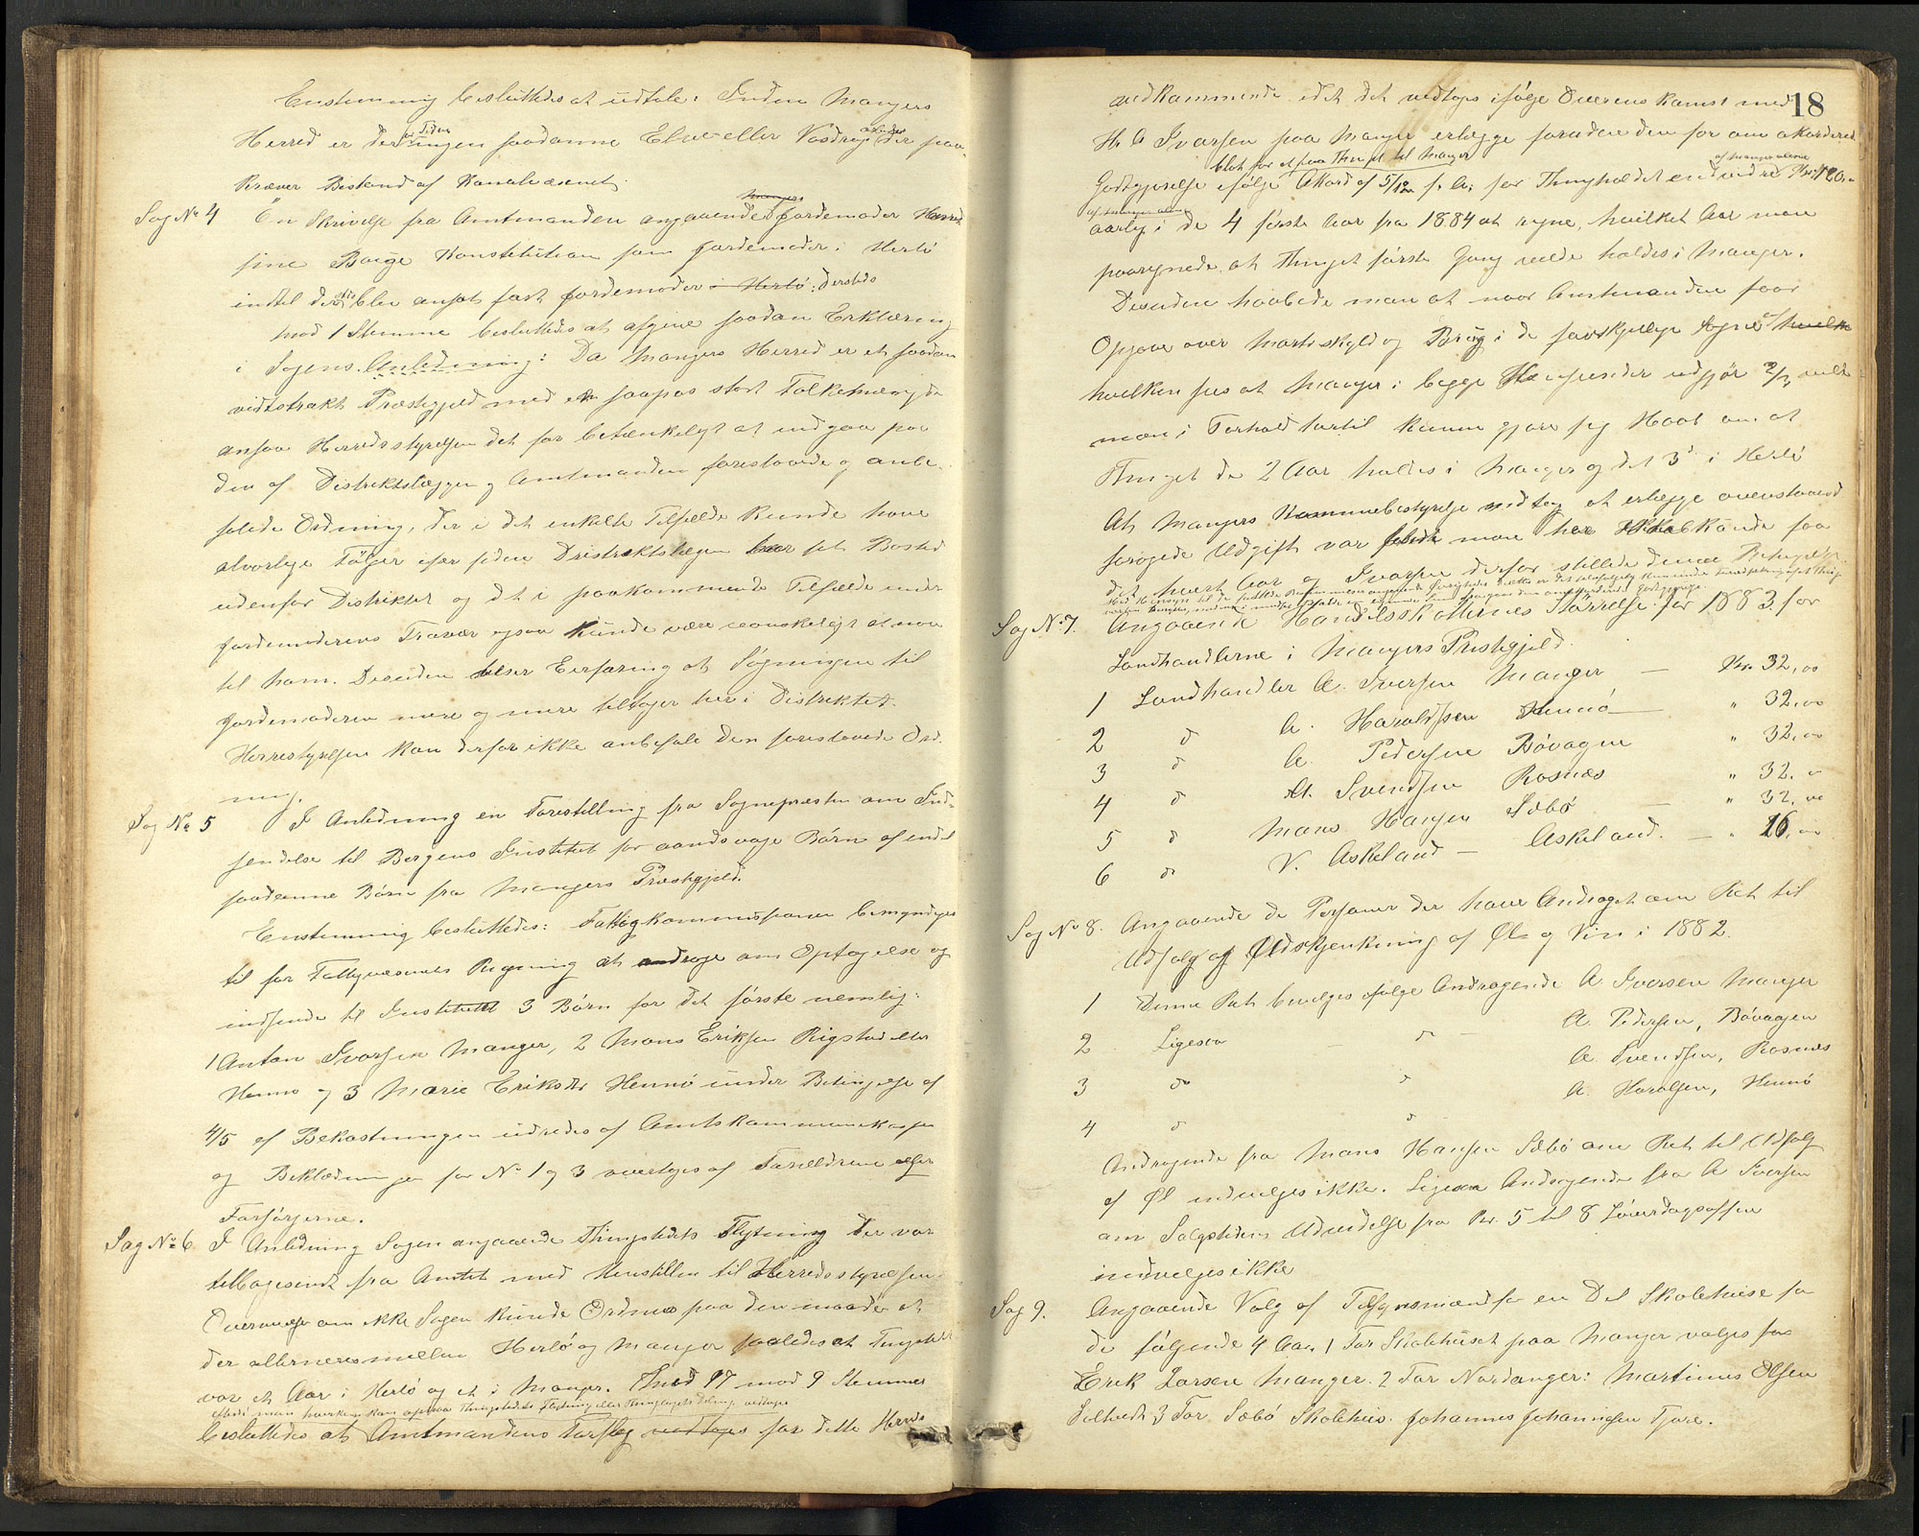 Enstemmig besluttedes at udtale: Inden Mangers
Herred er der for Tiden ingen saadanne Elve eller Vasdrag der paa-
kræver Bistand af Kanalvæsenet.
Sag No 4 En Skrivelse fra Amtmanden angaaende Mangers Jordemoder
sine Konstitution som Jordemoder i Herlø
indtil der blev ansat fast Jordemoder i Herlø dersteds
mod 1 Stemme besluttedes at afgive saadan Erklæring
i Sagens Anledning: Da Mangers Herred er et saadan
vidtstrakt Præstegjeld med en saapas stort Folkemængde
ansaa Herredsstyrelsen det for betænkeligt at indgaa paa
den af Distriktslægen og Amtmanden foreslaaede og anbe-
falede Ordning, der i det enkelte Tilfælde kunde have
alvorlige Følger især siden Distriktslægen har sit Bosted
udenfor Distriktet og det i paakommende Tilfælde under
Jordemoderens Fravær ogsaa kunde være vanskeligt at naa
til ham. Desuden viser Erfaring at Søgningen til
Jordemoderen mere og mere tiltager her i Distriktet.
Herrestyrelsen kan derfor ikke anbefale den foreslaaede Ord-
ning.
Sag No 5 I Anledning en Forestilling fra Sognepræsten om Ind-
sendelse til Bergens Institut for aandsvage Børn af endel
saadanne Børn fra Mangers Præstegjeld.
Enstemmig besluttedes: Fattigkommissionen bemyndiges
til for Fattigvæsenets Regning at andrage om Optagelse og
indsende til Institutet 3 Børn for det første nemlig:
1 Anton Ivarsen Manger, 2 Mons Eriksen Rigstad eller
Hennø og 3 Marie Eriksdr Hennø under Betingelse af
4/5 af Bekostningen udredes af Amtskommunekassen
og Beklædningen for No 1 og 3 overtages af Forældrene eller
Forsørgerne.
Sag No 6. I Anledning Sagen angaaende Thingstedets Flytning der var
tilbagesendt fra Amtet med Henstillen til Herredsstyrelsens
Overveielse om ikke Sagen kunde Ordnes paa den maade at
der alterneres mellem Herlø og Manger saaledes at Tingstedet
var et Aar i Herlø og et i Manger. Med 17 mod 9 Stemmer
besluttedes at Amtmandens Forslag vedtages for dette Herreds
18
vedkommende idet det vedtoges ifølge Overenskomst med
Hr A Ivarsen paa Manger erlægge foruden den for om akkorderede
blot for et paa Thinget til Manger
Godtgjørelse ifølge Akkord af 5/12 f. A. for Thingholdet endvidre af Mangerskomne Kr 120.-
aarlig i de 4 første Aar fra 1884 at regne, hvilket Aar man
paaregnede at Thinget første Gang vilde holdes i Manger.
Desuden haabede man at naar Amtmanden faar
Opgave over Martrskyld og Brug i de forskjellige Sogne af hvilke
hvilken sees at Manger i begge Henseender udgjør 2/3 vilde
man i Forhold hertil kunne gjøre sig Haab om at
Thinget de 2 Aar holdes i Manger og det 3d i Herlø
At Mangers Kommunebestyrelse vedtog at erlægge ovenstaaende
forøgede Udgift var fordi man her ikke kunde faa
det hvert Aar og Ivarsen derfor stillede denne Betingelse
Sag No 7. Angaaende Handelsskatternes Størrelse for 1883 for
Landhandlerne i Mangers Prestegjeld.
1 Landhandler A. Iversen Manger — Kr. 32,00
2 d A. Haraldsen Hennø — " 32,00
3 d A. Pedersen Bøvagen " 32,00
4 d A. Svendsen Rosnæs " 32,00
5 d Mons Hansen Sæbø — " 32,00
6 d V. Askeland — Askeland. — " 16,00
Sag No 8. Angaaende de Personer der have Andraget om Ret til
Udsalg og Udskjenkning af Øl og Vin i 1882.
1 Denne Ret bevilges ifølge Andragende A Iversen Manger
2 Ligesaa — d — A. Pedersen, Bøvaagen
3 do d A. Svendsen, Rosnæs
4 d d A. Haralsen, Hennø
Andragende fra Mons Hansen Sæbø om Ret til Udsalg
af Øl indvilges ikke. Ligesaa Andragende fra A Iversen
om Salgstidens Udvidelse fra Kl. 5 til 8 Løverdagsaften
indvilges ikke
Sag 9. Angaaende Valg af Tilsynsmænd for en Del Skolehuse for
de følgende 4 Aar. 1 For Skolehuset paa Manger valges for
Erik Larsen Manger. 2 For Nordanger: Martinus Olsen
Toltvedt 3 For Sæbø Skolehus. Johannes Johannesen Fjøre.